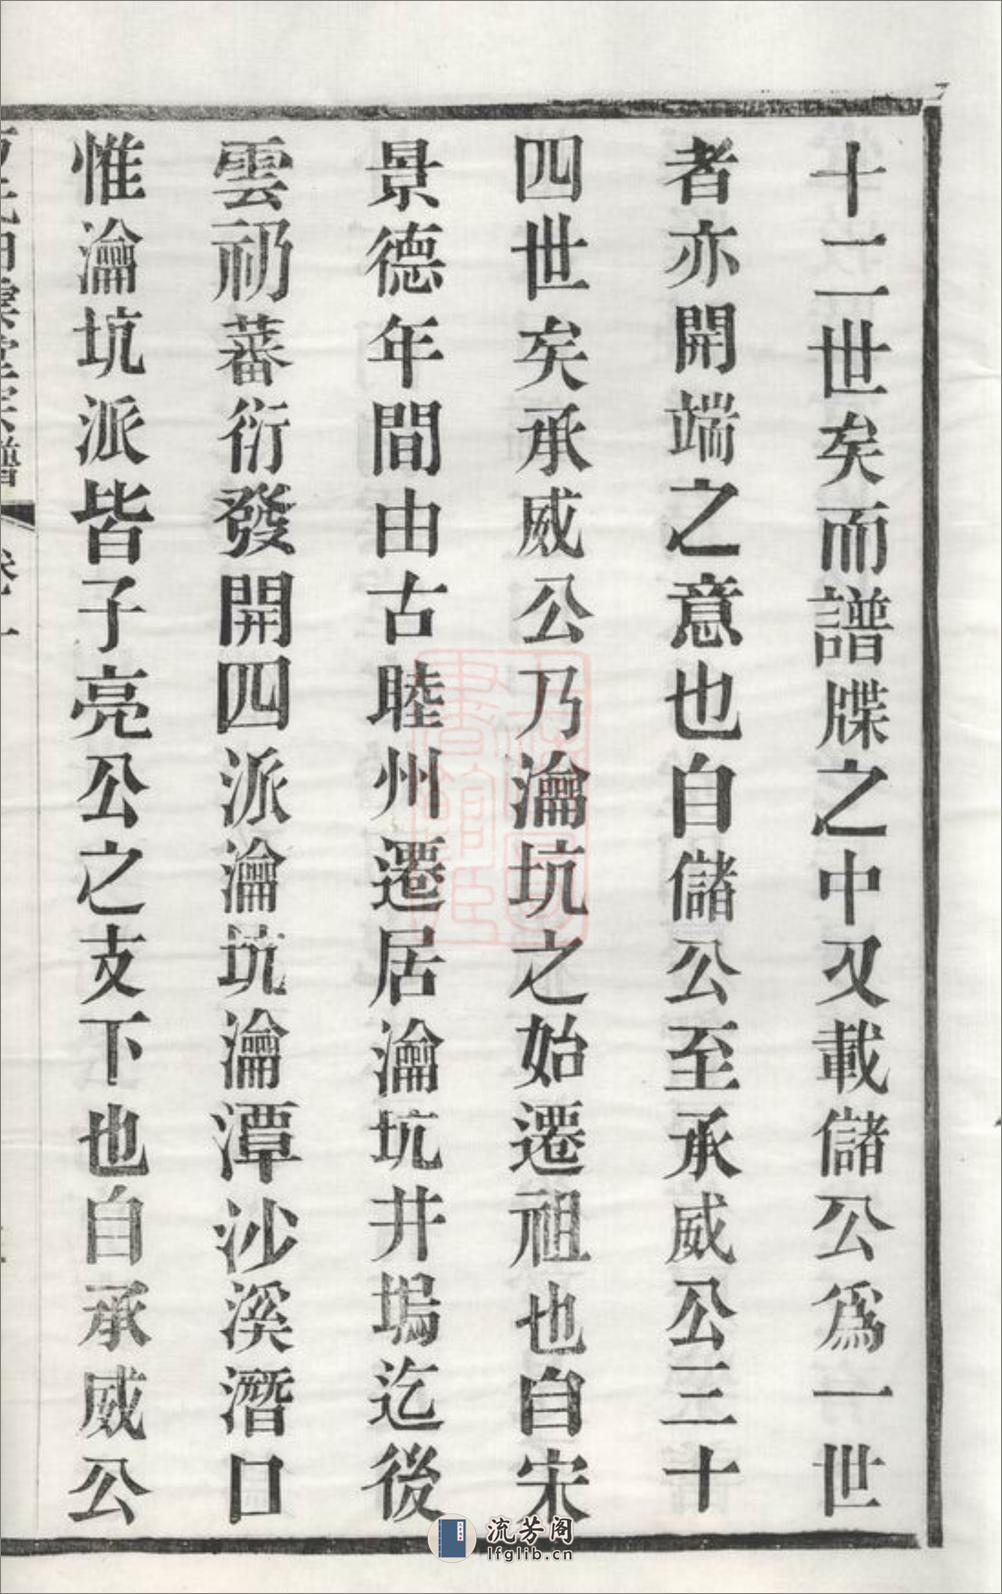 十二世矣而譜牒之中又載儲公爲一世
者亦開端之意也自儲公至承威公三十
四世矣承威公乃瀹坑之始遷祖也自宋
景德年間由古睦州遷居瀹坑井塢迄後
雲礽蕃衍發開四派瀹坑瀹潭沙溪潛口
惟瀹坑派皆子亮公之支下也自承威公
流芳阁
lfglib.cn